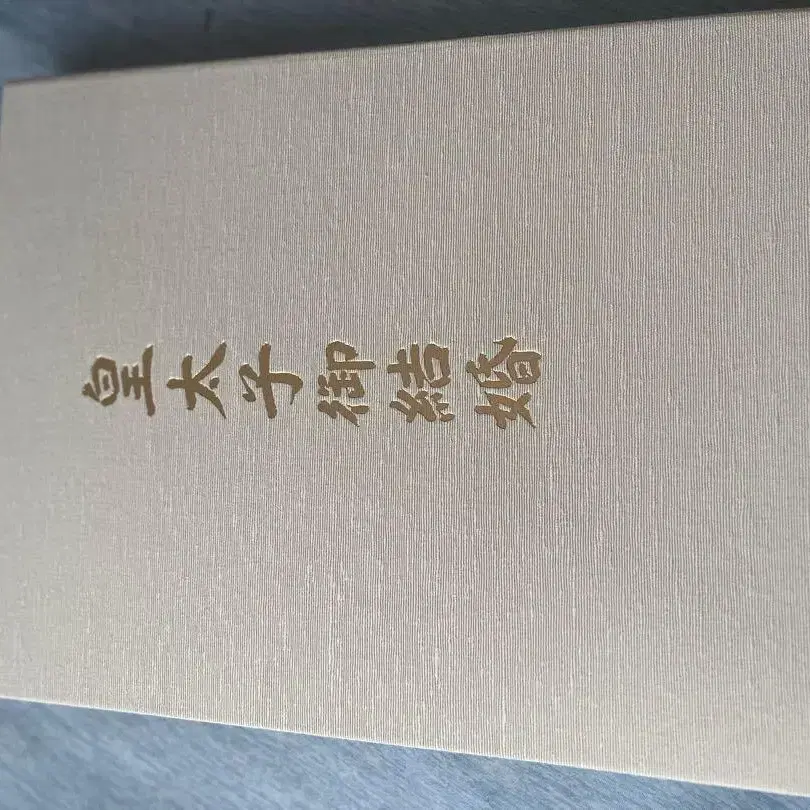 皇太子御結婚